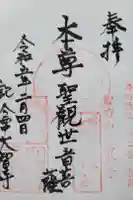 奉拝
本尊 聖観世音菩薩
令和五年二月四日
大智寺